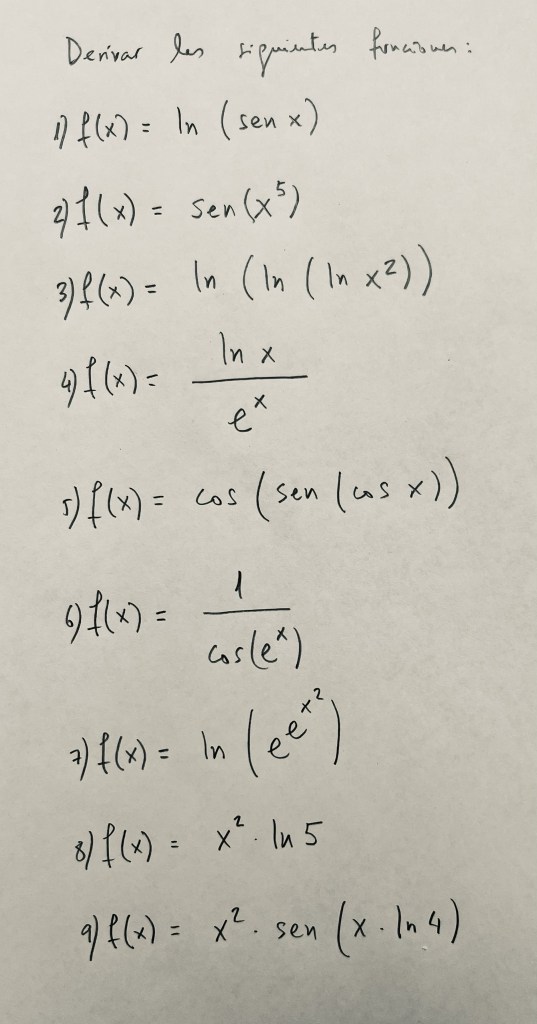 Derivar las siguientes funciones:
1) f(x) = ln (sen x)
2) f(x) = sen (x⁵)
3) f(x) = ln (ln (ln x²))
4) f(x) = ln x / eˣ
5) f(x) = cos (sen (cos x))
6) f(x) = 1 / cos(eˣ)
7) f(x) = ln (e^(e^(x²)))
8) f(x) = x² · ln 5
9) f(x) = x² · sen (x · ln 4)